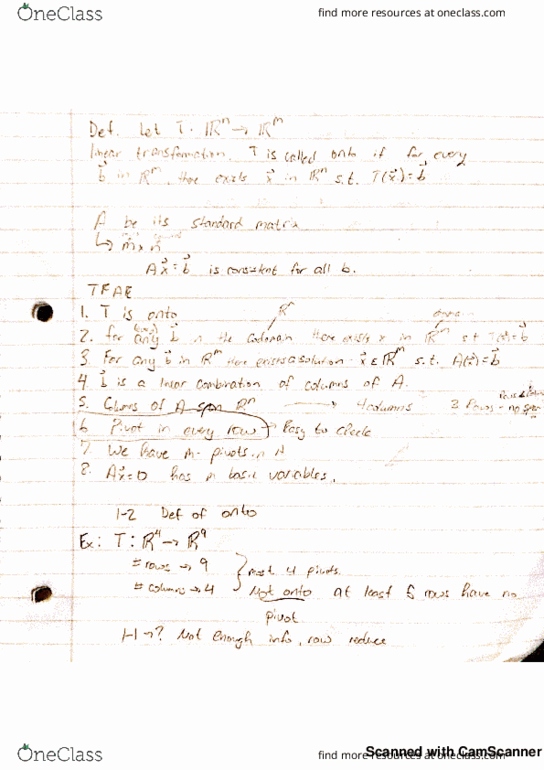 OneClass
find more resources at oneclass.com
Def. Let T: ℝⁿ → ℝᵐ
linear transformation. T is called onto if for every
b⃗ in ℝᵐ, there exists x⃗ in ℝⁿ s.t. T(x⃗)=b⃗
A be its standard matrix
↳ m x n
Ax⃗=b⃗ is consistent for all b.
TFAE
1. T is onto ℝⁿ
2. For any b⃗ in the codomain there exists x in ℝᵐ s.t T(x)=b⃗
3. For any b⃗ in ℝᵐ there exists a solution x⃗ ∈ ℝᵐ s.t. A(x⃗)=b⃗
4. b⃗ is a linear combination of columns of A.
5. Columns of A span ℝⁿ → 4 columns 3 Rows - no span
6. Pivot in every row → Easy to check
7. We have m pivots in A
8. Ax⃗=0 has m basic variables.
1-2 Def of onto
Ex: T: ℝ⁴ → ℝ⁹
# rows → 9 } most 4 pivots.
# columns → 4 Not onto at least 5 rows have no
pivot
1-1 → ? Not enough info, row reduce
OneClass
find more resources at oneclass.com
Scanned with CamScanner